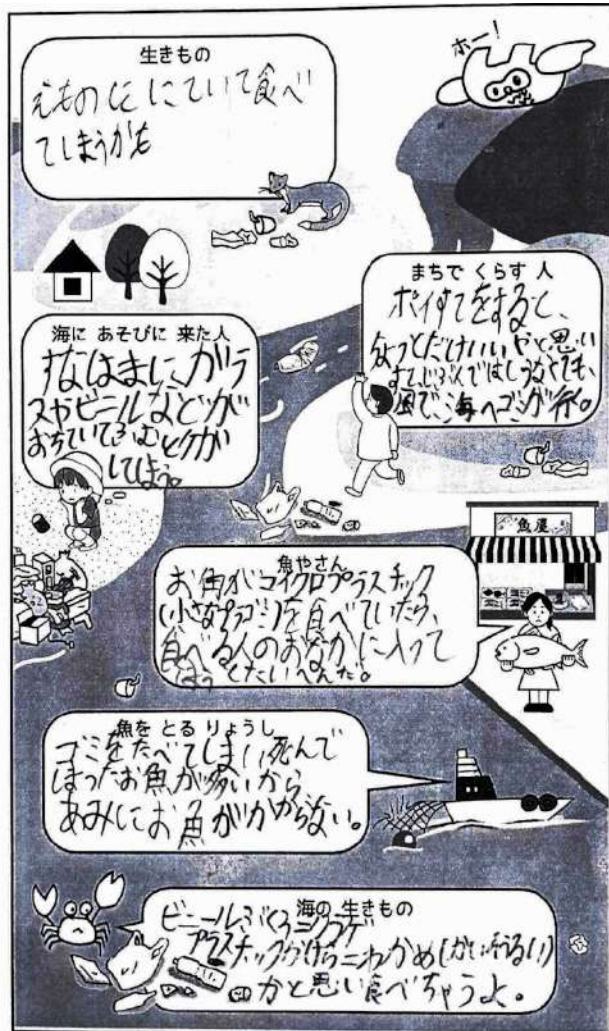 ホー！
生きもの
えものににていて食べ
てしまうかも
まちで くらす 人
ポイすてをすると、
ちょっとだけいいやと思い
風で、海へゴミが行く。
海に あそびに 来た人
すなはまに、ガラ
スやビニールなどが
おちていてふむとケガ
してしまう。
魚屋
魚やさん
お魚がマイクロプラスチック
(小さなプラゴミ)を食べていたら、
食べる人のおなかに入って
たいへんだ。
魚を とる りょうし
ゴミをたべてしまい死んで
しまったお魚が多いから
あみにお魚がかからない。
海の 生きもの
ビニールぶくろ=クラゲ
プラスチックかけら=わかめ(かいそうるい)
かと思い食べちゃうよ。